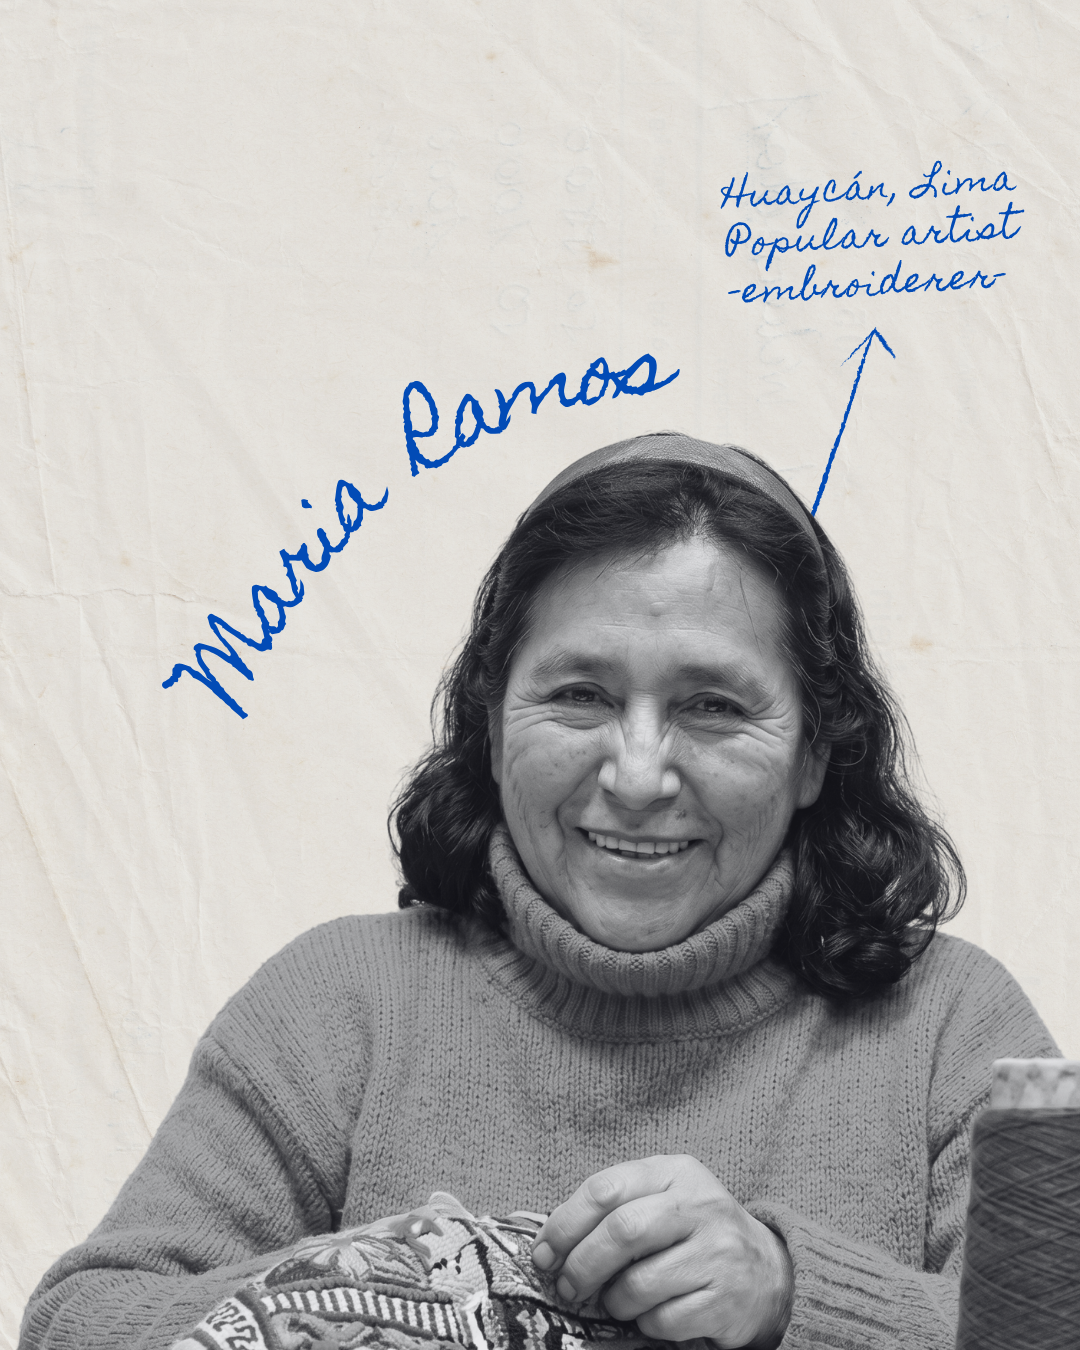 Huaycán, Lima
Popular artist
-embroiderer-
Maria Ramos